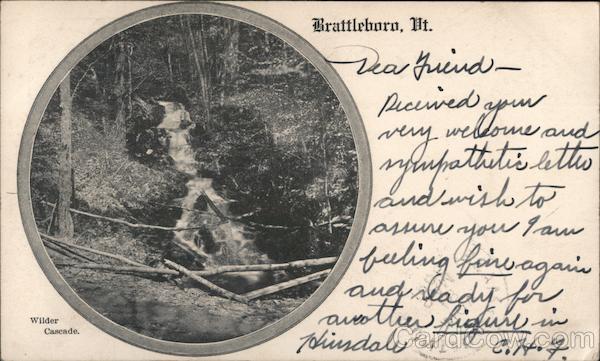 Brattleboro, Vt.
Dea Friend –
Received your
very welcome and
sympathetic letter
and wish to
assure you I am
feeling fine again
and ready for
another figure in
Hinsdale
Wilder
Cascade.
CardCow.com